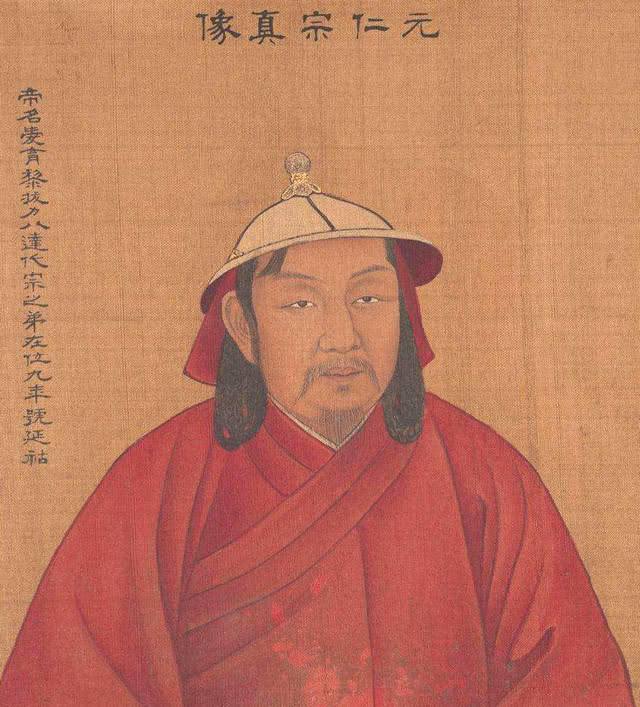 元仁宗真像
帝名愛育黎拔力八達代宗之弟在位九年號延祐